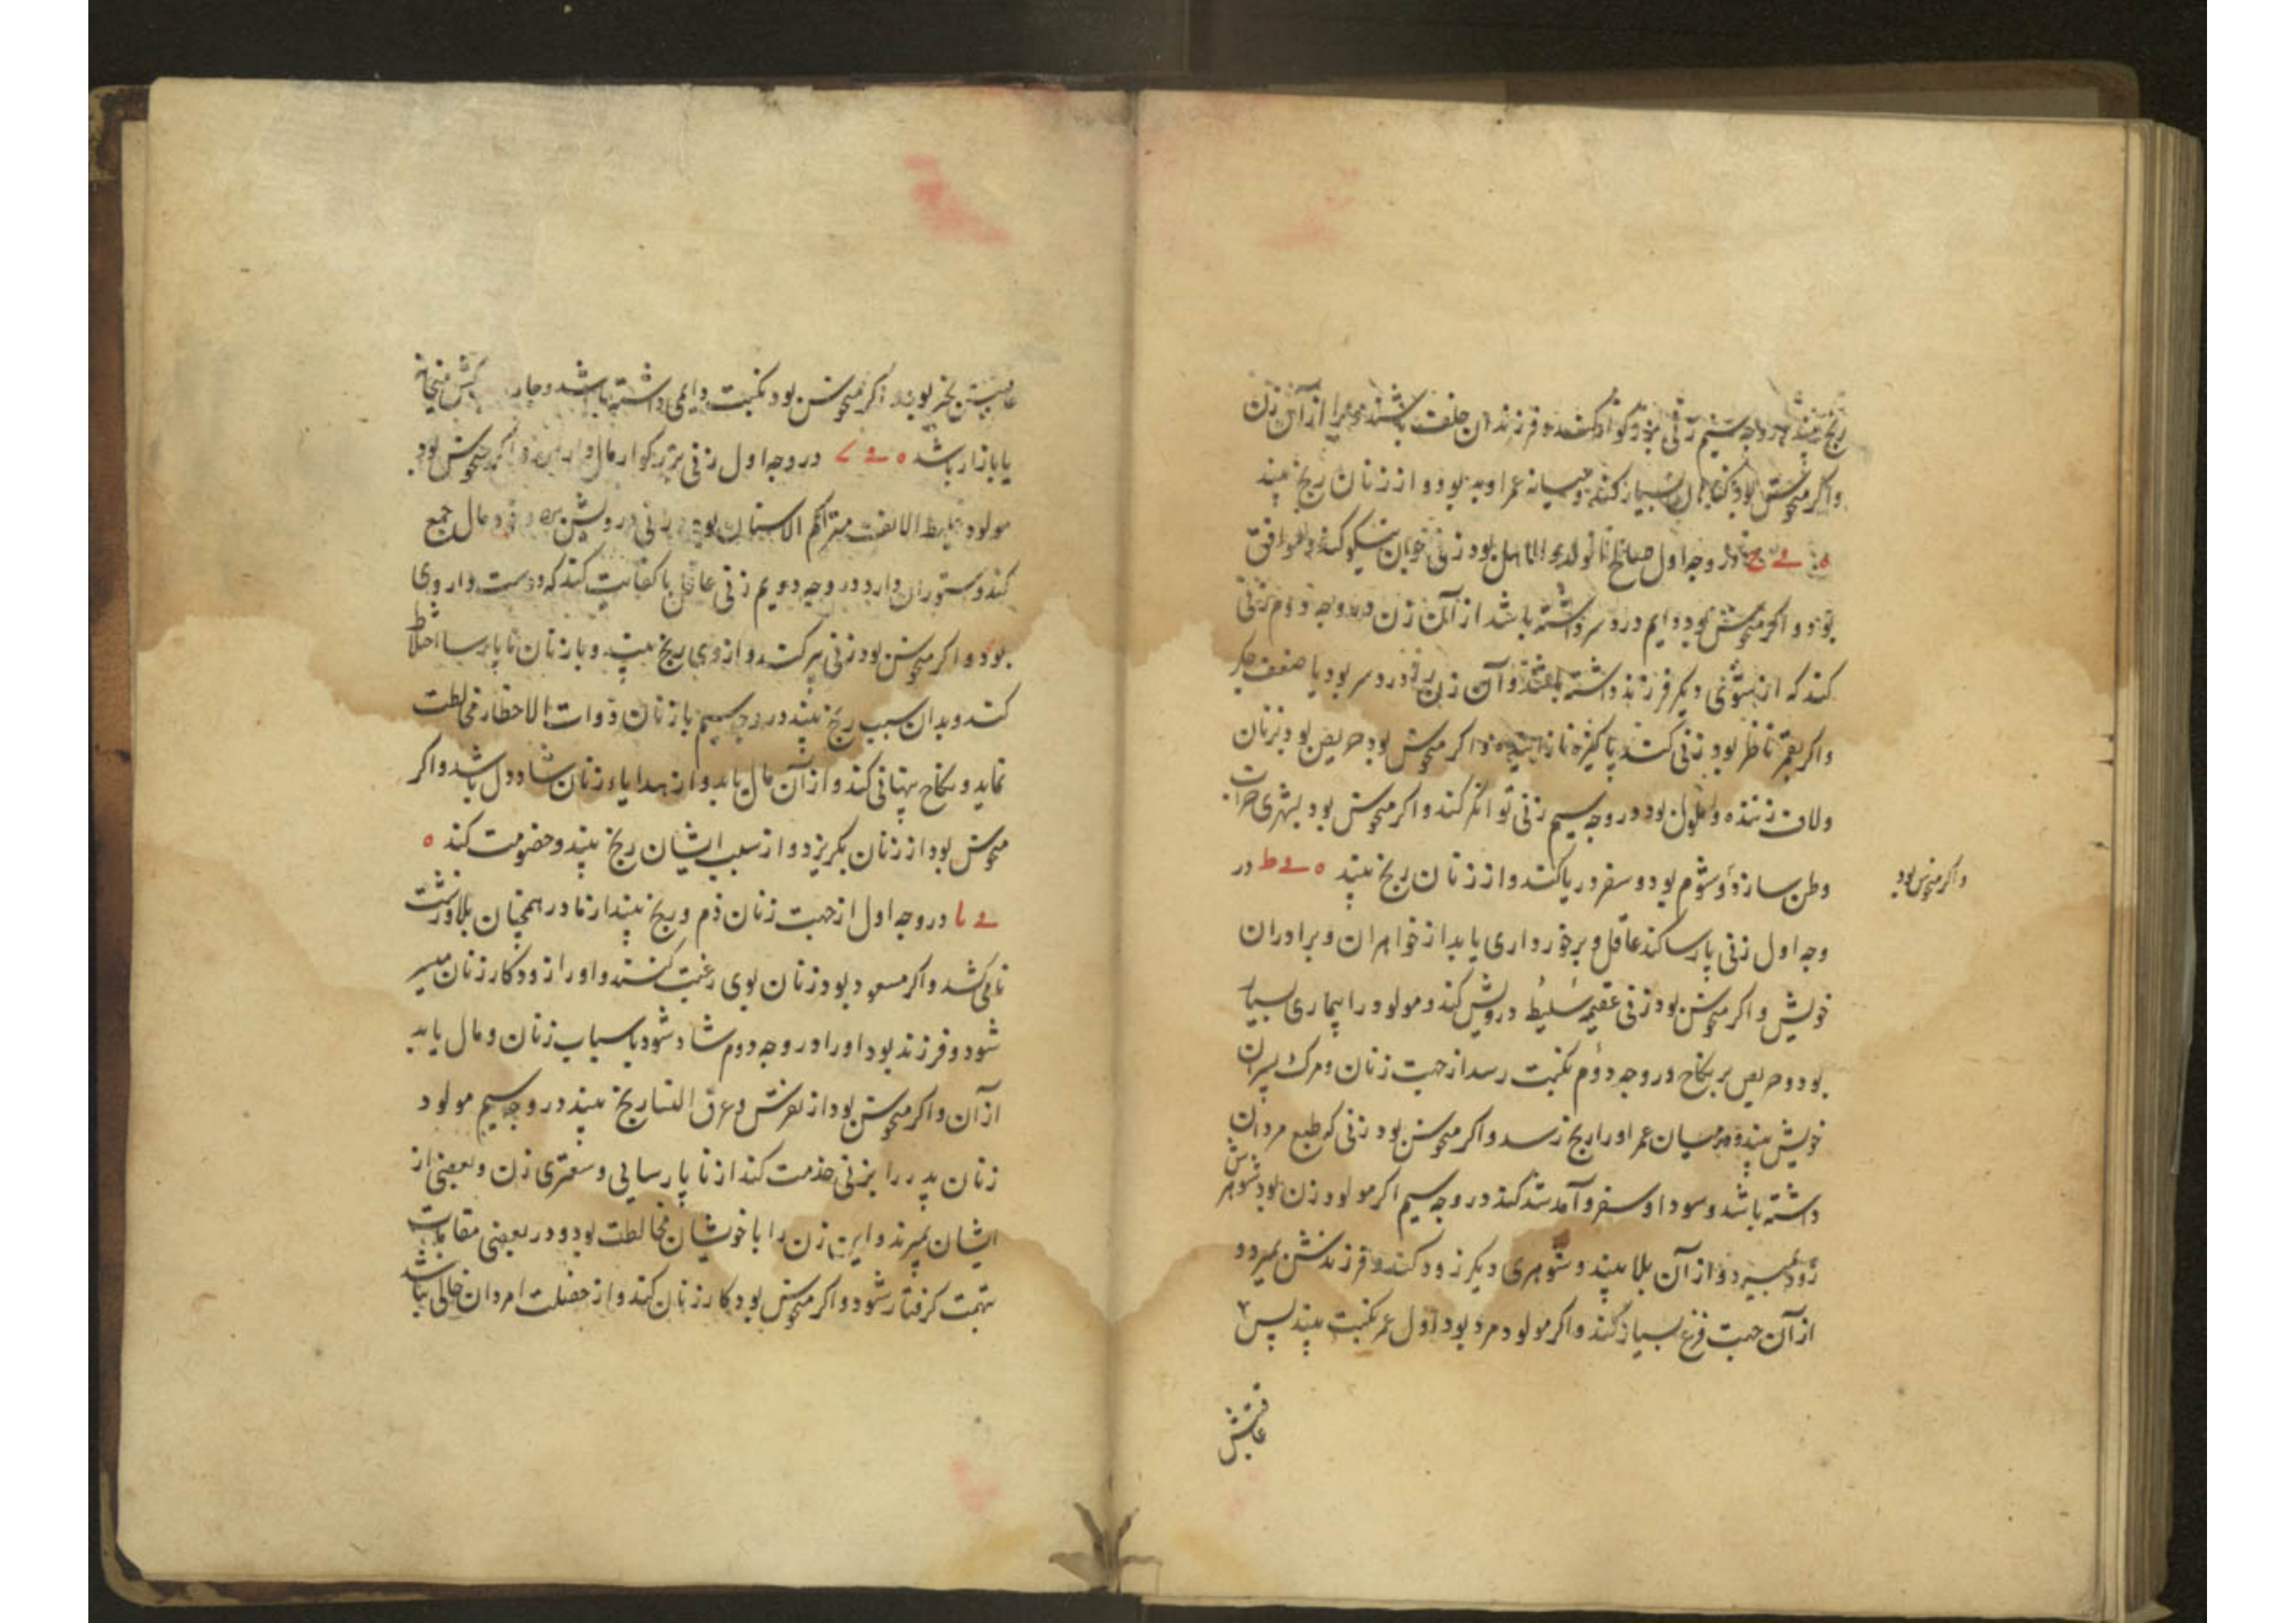 رنج بیند در وجه سیم زنی بزرکوار کند و فرزندان خلف باشند ویرا از آن زن
واکر منحوس بود نکاح بسیار کند و میانه عمر او بد بود و از زنان رنج بیند
در وجه اول صانع بود زنی خوبان نیکو کند و موافق
بود و اکر منحوس بود دایم درد سر داشته باشد از آن زن در وجه دوم زنی
کند که از شوئی دیکر فرزند داشته باشد و آن زن را درد سر بود یا ضعف جکر
واکر بقمر ناظر بود زنی کند پاکیزه نازاینده و اکر منحوس بود حریص بود بزنان
ولاف زننده و ملول بود در وجه سیم زنی توانکر کند و اکر منحوس بود بشهری خراب
وطن سازد و شوم بود و سفر دریا کند و از زنان رنج بیند ه ے ط در
واکر منحوس بود
وجه اول زنی پارسا کند عاقل و برخورداری یابد از خواهران و برادران
خویش و اکر منحوس بود زنی عقیمه سلیط درویش کند و مولود را بیماری بسیار
بود و حریص بر نکاح در وجه دوم نکبت رسد از جهت زنان و مرک پسران
خویش بیند و در میان عمر او را رنج رسد و اکر منحوس بود زنی که طبع مردان
داشته باشد و سودا و سفر و آمد شد کند در وجه سیم اکر مولود زن بود شوهرش
زود بمیرد و از آن بلا بیند و شوهری دیکر زود کند و فرزندش بمیرد و
از آن جهت فزع بسیار کند و اکر مولود مرد بود اول عمر نکبت بیند پس
عاقبتش
عاقبتش بخیر بود و اکر منحوس بود نکبت دایمی داشته باشد و جایکاهش میخانه
یا بازار باشد ه ے ک در وجه اول زنی بزرکوار مال دار کند و اکر منحوس بود
مولود غلیظ الانف متراکم الاسنان بود زنی درویش مال جمع
کند و ستوران دارد در وجه دویم زنی عاقل با کفایت کند که دوست دار وی
بود و اکر منحوس بود زنی پیر کند و از وی رنج بیند و با زنان ناپارسا اختلاط
کند و بدان سبب رنج بیند در وجه سیم با زنان ذوات الاخطار مخالطت
نماید و نکاح پنهانی کند و از آن مال یابد و از هدایاء زنان شاد دل باشد و اکر
منحوس بود از زنان بکریزد و از سبب ایشان رنج بیند و خصومت کند ه
ے ا در وجه اول از جهت زنان ذم و رنج بیند از مادر همچنان بلا و زشت
نامی کشد و اکر مسعود بود زنان بوی رغبت کنند و او را زود کار زنان میسر
شود و فرزند بود او را در وجه دوم شاد شود باسباب زنان و مال یابد
از آن و اکر منحوس بود از نقرس و عرق النسا رنج بیند در وجه سیم مولود
زنان پدر را بزنی خدمت کند از ناپارسایی و سعتری زن و بعضی از
ایشان بمیرند و این زن را با خویشان مخالطت بود و در بعضی مقامات
بتهمت کرفتار شود و اکر منحوس بود کار زنان کند و از خصلت امردان خالی نباشد